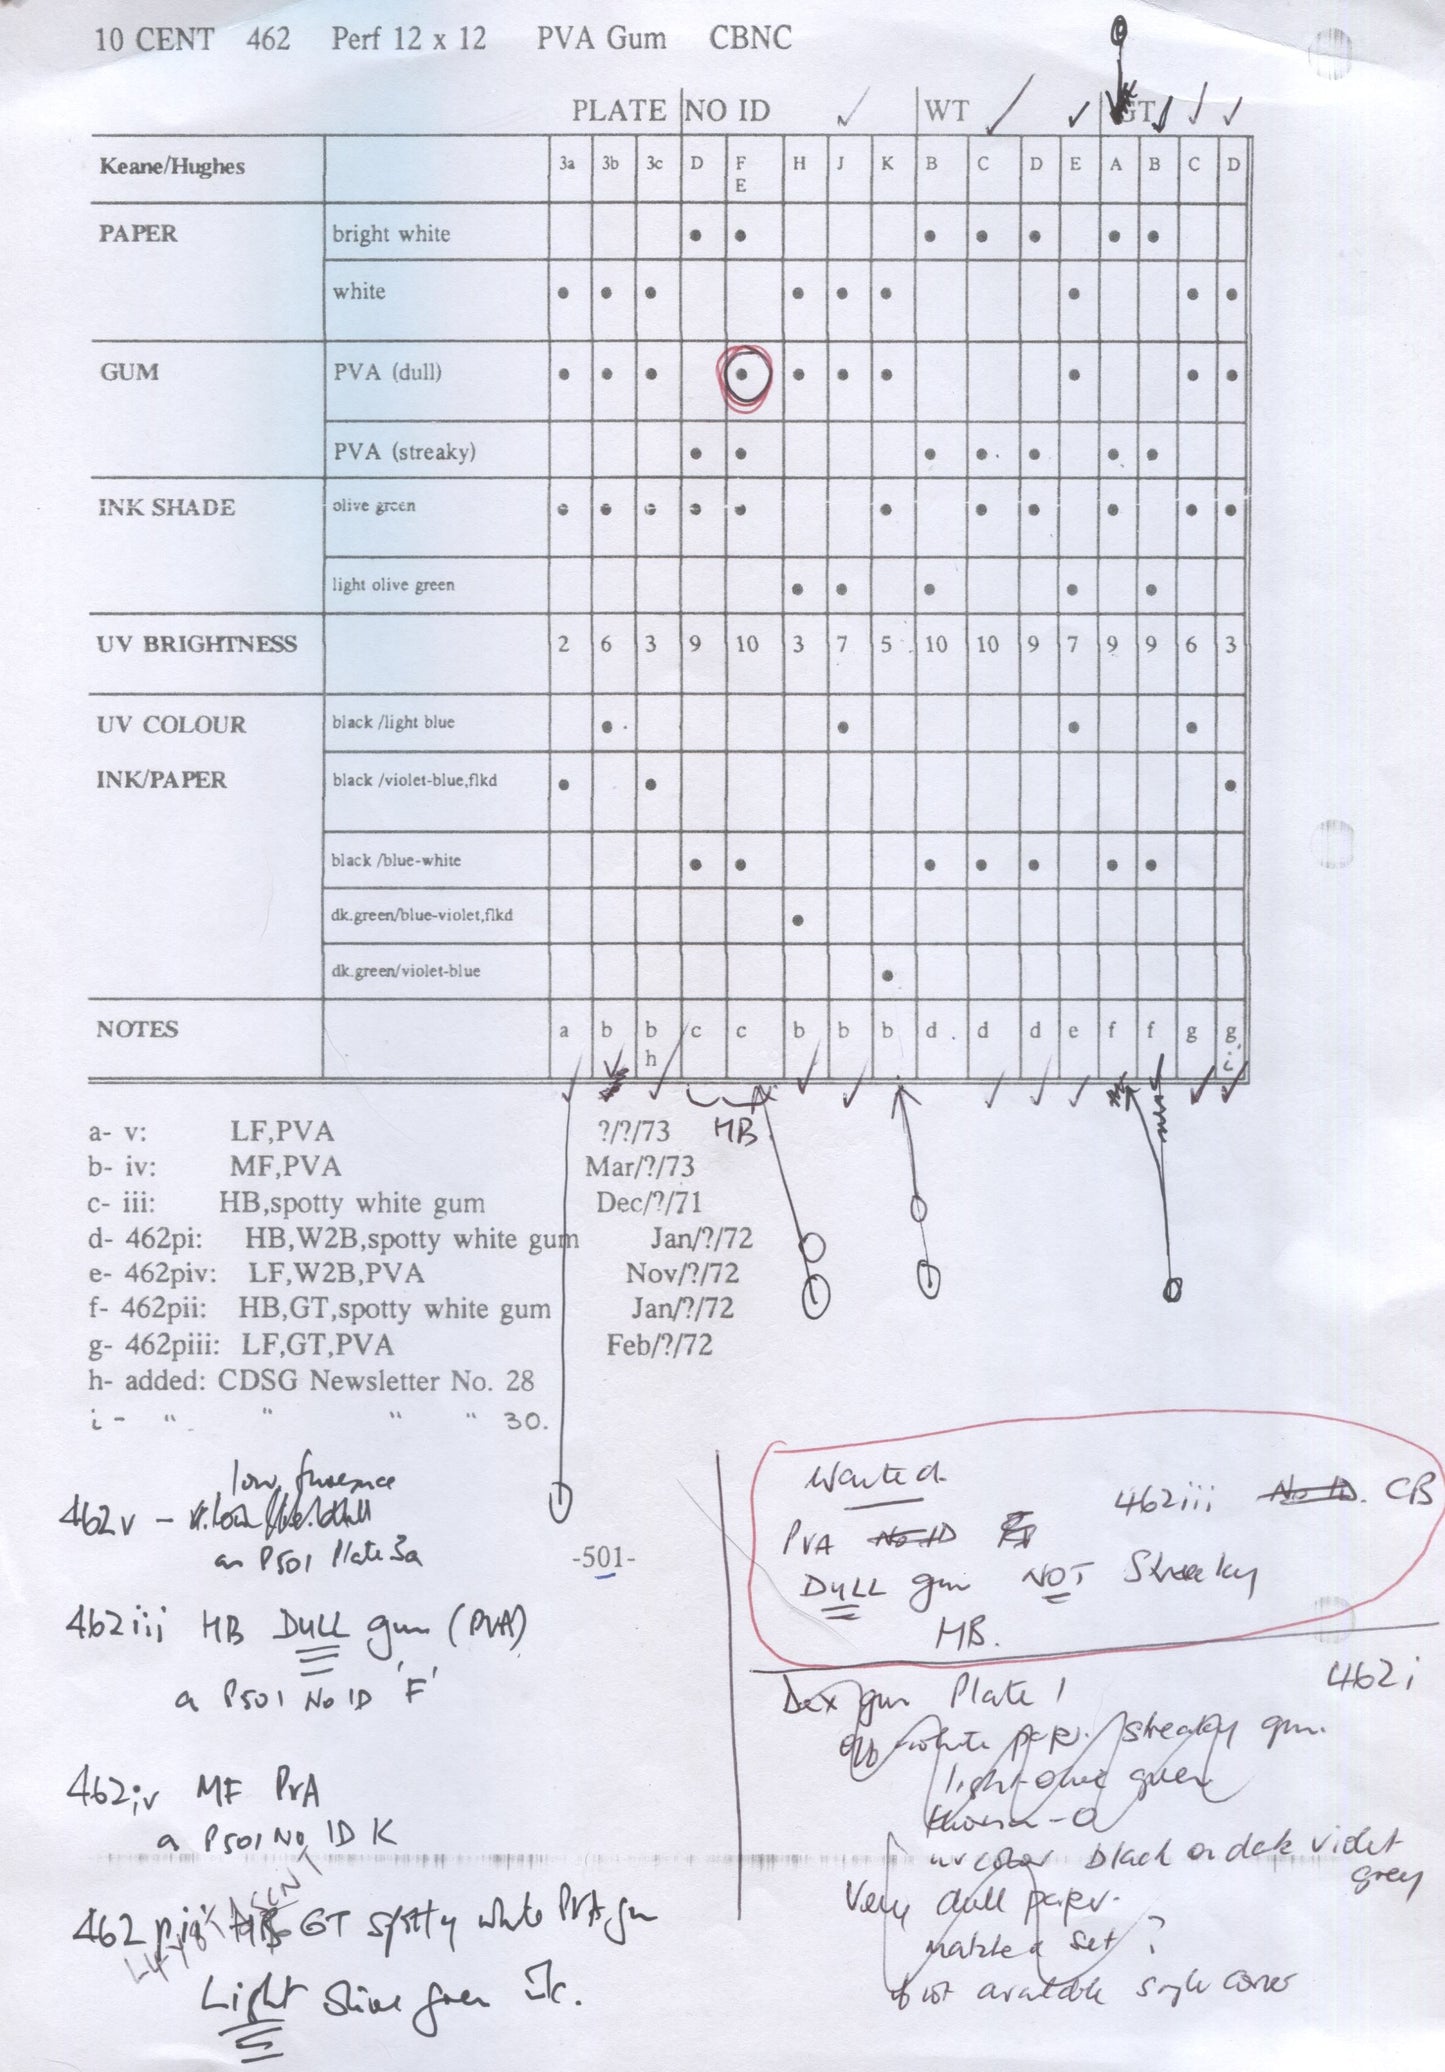 10 CENT 462 Perf 12 x 12 PVA Gum CBNC
PLATE NO ID WT GT
Keane/Hughes 3a 3b 3c D F E H J K B C D E A B C D
PAPER bright white • • • • • • •
white • • • • • • • • •
GUM PVA (dull) • • • • • • • • • •
PVA (streaky) • • • • • • •
INK SHADE olive green • • • • • • • • • • •
light olive green • • • • •
UV BRIGHTNESS 2 6 3 9 10 3 7 5 10 10 9 7 9 9 6 3
UV COLOUR black /light blue • • • •
INK/PAPER black /violet-blue,flkd • • •
black /blue-white • • • • • • •
dk.green/blue-violet,flkd •
dk.green/violet-blue •
NOTES a b b h c c b b b d d d e f f g g, i
MB
a- v: LF,PVA ?/?/73
b- iv: MF,PVA Mar/?/73
c- iii: HB,spotty white gum Dec/?/71
d- 462pi: HB,W2B,spotty white gum Jan/?/72
e- 462piv: LF,W2B,PVA Nov/?/72
f- 462pii: HB,GT,spotty white gum Jan/?/72
g- 462piii: LF,GT,PVA Feb/?/72
h- added: CDSG Newsletter No. 28
i - " " " " 30.
low
462v -
P501 Plate 3a
-501-
462iii HB DULL gum (PVA)
a P501 No ID 'F'
462iv MF PVA
a P501 No ID K
462 GT spotty white PVA gum
Light olive green
Wanted
462iii No ID. CB
PVA No ID
DULL gum NOT Streaky
MB.
462i
Dex gum Plate 1
off-white paper. streaky gum.
light olive green
uv color black on dark violet grey
Very dull paper.
matched set?
if not available single corner